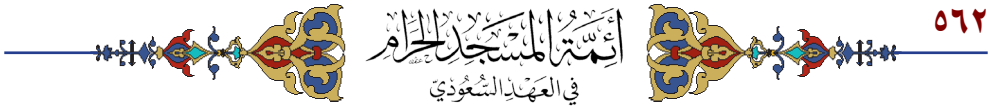 ٥٦٢
أَئِمَّةُ المَسْجِدِ الحَرَامِ
فِي العَهْدِ السُّعُودِيِّ